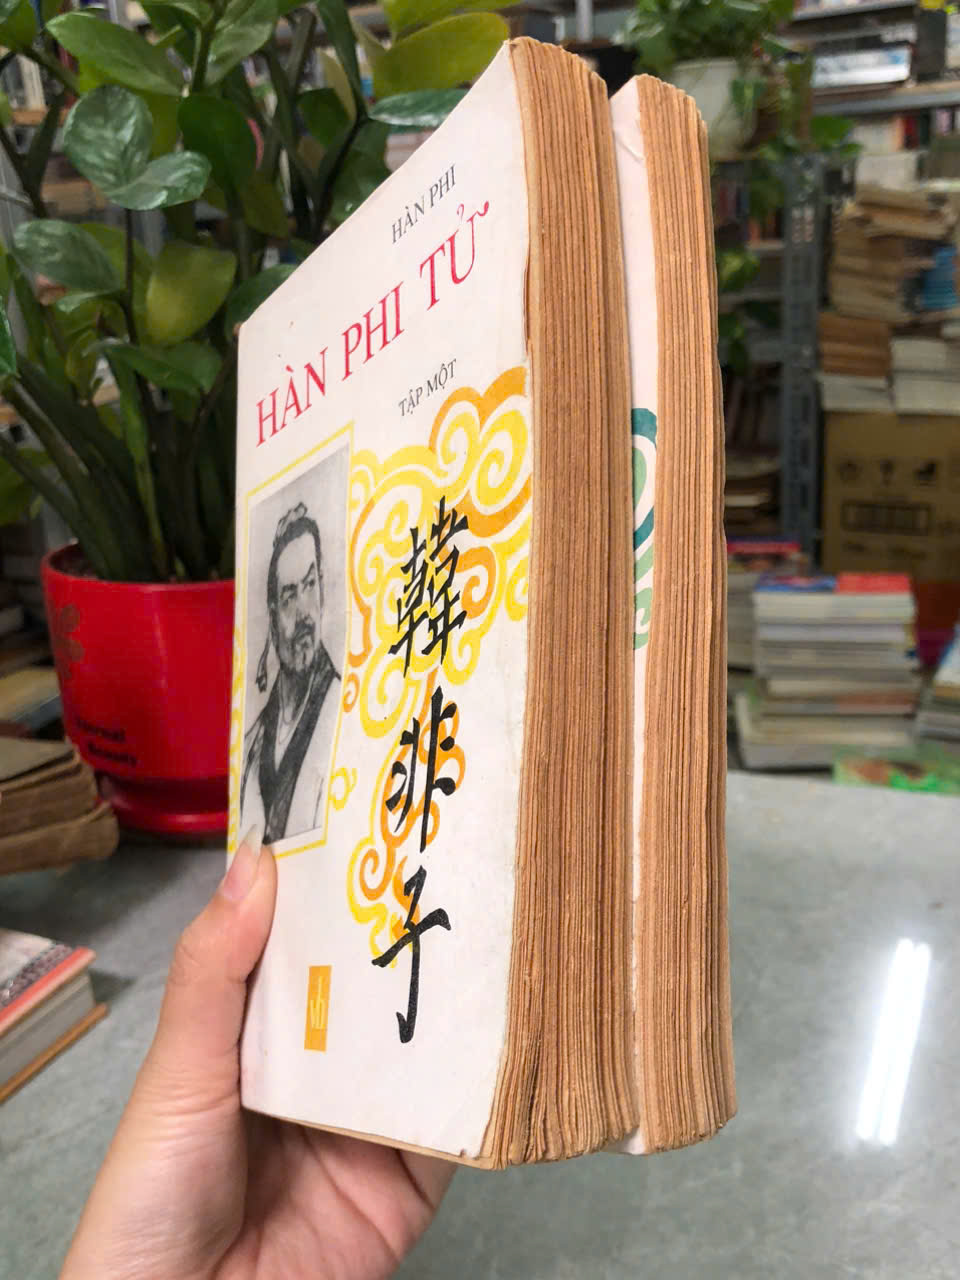 HÀN PHI
HÀN PHI TỬ
TẬP MỘT
韓
非
子
vh